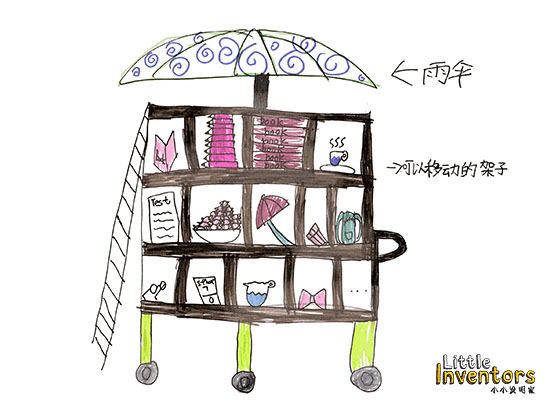 ←雨伞
book
book
book
book
book
book
→可以移动的架子
Test
Little
Inventors
小小发明家